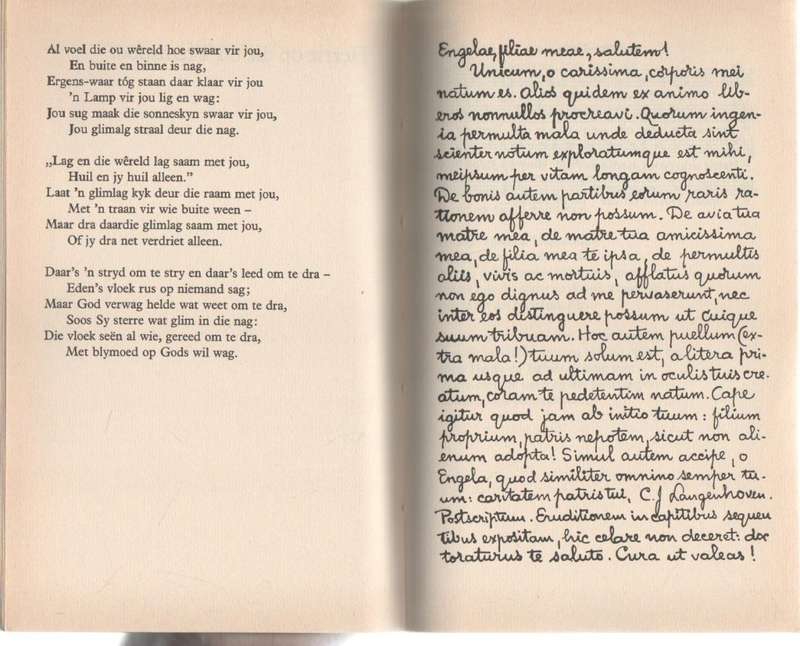 Al voel die ou wêreld hoe swaar vir jou,
En buite en binne is nag,
Ergens-waar tóg staan daar klaar vir jou
'n Lamp vir jou lig en wag:
Jou sug maak die sonneskyn swaar vir jou,
Jou glimalg straal deur die nag.
„Lag en die wêreld lag saam met jou,
Huil en jy huil alleen.”
Laat 'n glimlag kyk deur die raam met jou,
Met 'n traan vir wie buite ween –
Maar dra daardie glimlag saam met jou,
Of jy dra net verdriet alleen.
Daar's 'n stryd om te stry en daar's leed om te dra –
Eden's vloek rus op niemand sag;
Maar God verwag helde wat weet om te dra,
Soos Sy sterre wat glim in die nag:
Die vloek seën al wie, gereed om te dra,
Met blymoed op Gods wil wag.
Engelae, filiae meae, salutem!
Unicum, o carissima, corporis mei
natum es. Alios quidem ex animo lib-
eros nonnullos procreavi. Quorum ingen-
ia permulta mala unde deducta sint
scienter notum exploratumque est mihi,
meipsum per vitam longam cognoscenti.
De bonis autem partibus eorum raris ra-
tionem afferre non possum. De avia tua
matre mea, de matre tua amicissima
mea, de filia mea te ipsa, de permultis
aliis, vivis ac mortuis, afflatus quorum
non ego dignus ad me pervaserunt, nec
inter eos distinguere possum ut cuique
suum tribuam. Hoc autem puellum (ex-
tra mala!) tuum solum est, a litera pri-
ma usque ad ultimam in oculis tuis cre-
atum, coram te pedetentim natum. Cape
igitur quod jam ab initio tuum: filium
proprium, patris nepotem, sicut non ali-
enum adopta! Simul autem accipe, o
Engela, quod similiter omnino semper tu-
um: caritatem patris tui, C. J. Langenhoven.
Postscriptum. Eruditionem in capitibus sequen
tibus expositam, hic celare non deceret: doc
toraturus te saluto. Cura ut valeas!